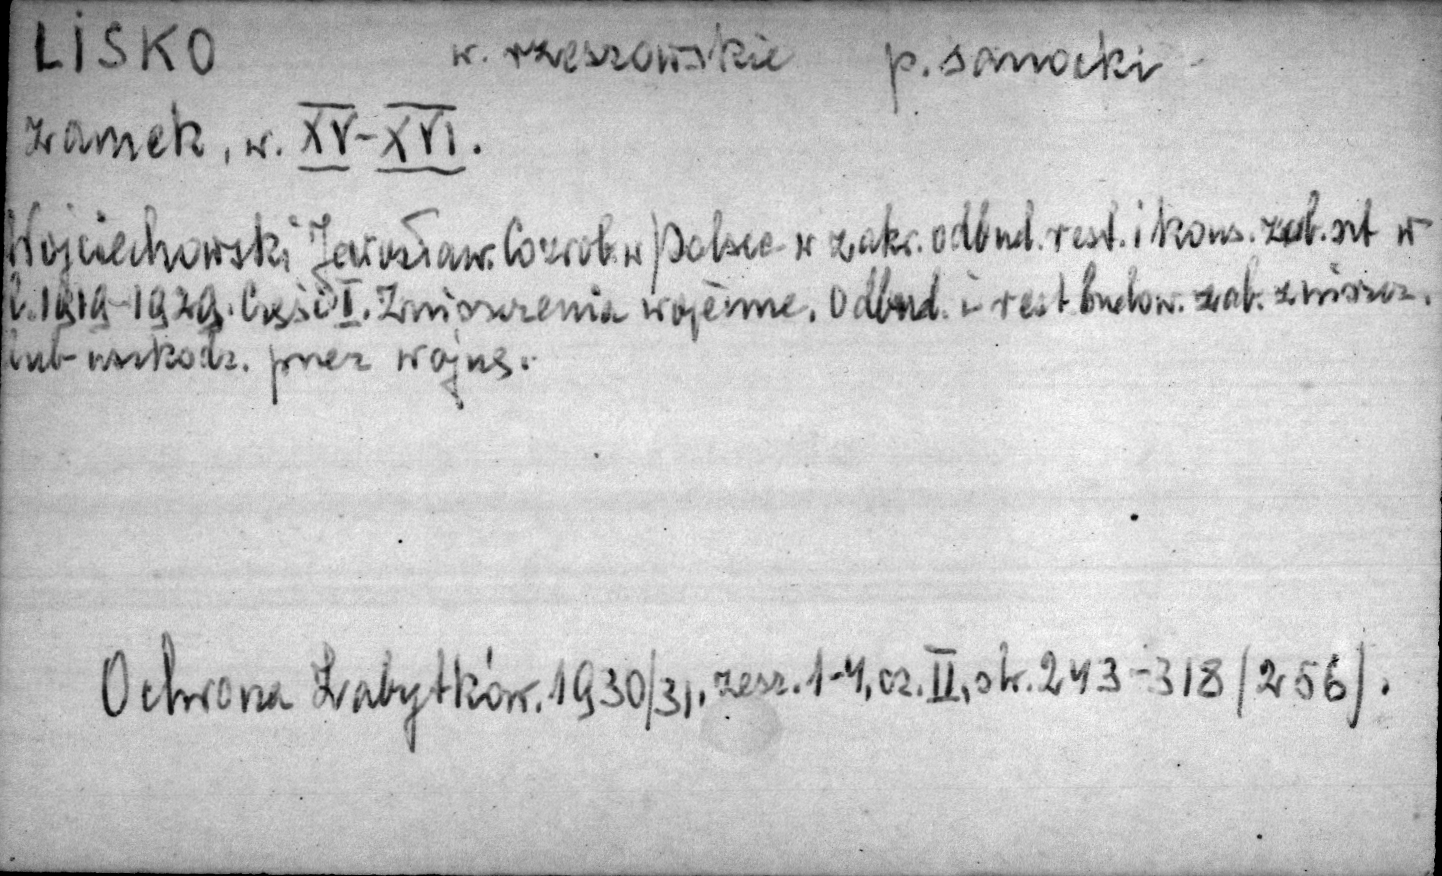 LISKO w. rzeszowskie p. sanocki
zamek, w. XV-XVI.
Wojciechowski Jarosław. Co zrob. w Polsce w zakr. odbud. rest. i kons. zab. szt w
l. 1919-1929. Część I. Zniszczenia wojenne. Odbud. i rest budow. zab. zniszcz.
lub uszkodz. przez wojnę.
Ochrona Zabytków. 1930/31, zesz. 1-4, cz. II, str. 243-318 (256).